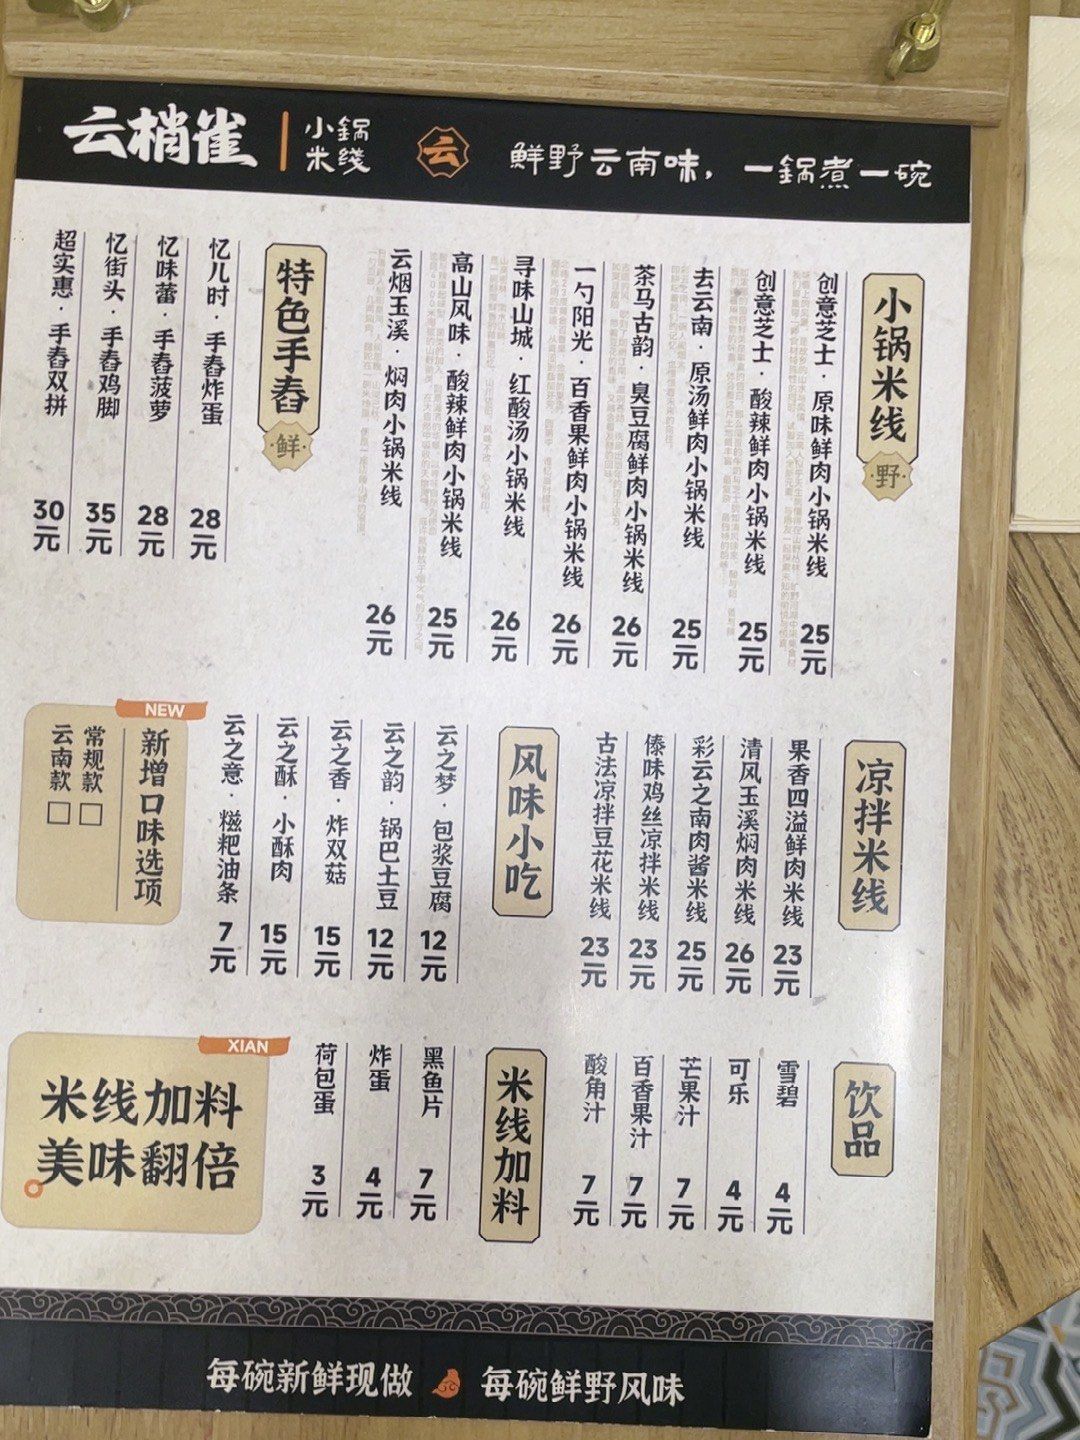 云梢雀
小鍋
米綫
云
鮮野云南味，一鍋煮一碗
小锅米线
野
创意芝士·原味鲜肉小锅米线 25元
创意芝士·酸辣鲜肉小锅米线 25元
去云南·原汤鲜肉小锅米线 25元
茶马古韵·臭豆腐鲜肉小锅米线 26元
一勺阳光·百香果鲜肉小锅米线 26元
寻味山城·红酸汤小锅米线 26元
高山风味·酸辣鲜肉小锅米线 25元
云烟玉溪·焖肉小锅米线 26元
特色手舂
鲜
忆儿时·手舂炸蛋 28元
忆味蕾·手舂菠萝 28元
忆街头·手舂鸡脚 35元
超实惠·手舂双拼 30元
凉拌米线
果香四溢鲜肉米线 23元
清风玉溪焖肉米线 26元
彩云之南肉酱米线 25元
傣味鸡丝凉拌米线 23元
古法凉拌豆花米线 23元
风味小吃
云之梦·包浆豆腐 12元
云之韵·锅巴土豆 12元
云之香·炸双菇 15元
云之酥·小酥肉 15元
云之意·糍粑油条 7元
NEW
新增口味选项
常规款□
云南款□
饮品
雪碧 4元
可乐 4元
芒果汁 7元
百香果汁 7元
酸角汁 7元
米线加料
黑鱼片 7元
炸蛋 4元
荷包蛋 3元
XIAN
米线加料
美味翻倍
每碗新鲜现做 每碗鲜野风味